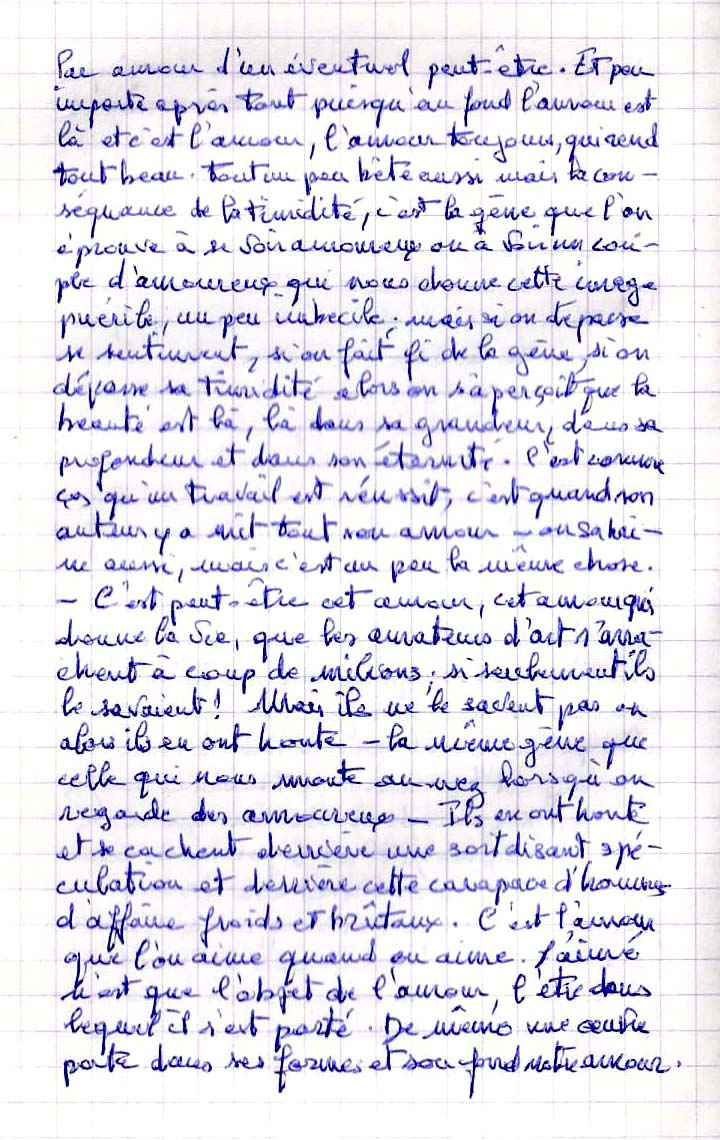 Par amour d'un éventuel peut-être. Et peu
importe après tout puisqu'au fond l'amour est
là et c'est l'amour, l'amour toujours, qui rend
tout beau. tout un peu bête aussi mais la con-
séquance de la timidité, c'est la gêne que l'on
éprouve à se voir amoureux ou à voir un cou-
ple d'amoureux qui nous donne cette image
puérile, un peu imbécile; mais si on dépasse
se sentiment, si on fait fi de la gêne, si on
dépasse sa timidité alors on s'aperçoit que la
beauté est là, là dans sa grandeur, dans sa
profondeur et dans son éternité. C'est comme
ças qu'un travail est réussit, c'est quand son
auteur y a mit tout son amour - ou sa hai-
ne aussi, mais c'est un peu la même chose.
- C'est peut-être cet amour, cet amour qui
donne la vie, que les amateurs d'art s'arra-
chent à coup de milions; si seulement ils
le savaient! Mais ils ne le savent pas ou
alors ils en ont honte - la même gêne que
celle qui nous monte au nez lorsqu'on
regarde des amoureux - Ils en ont honte
et se cachent derrière une soit disant spé-
culation et derrière cette carapace d'hommes
d'affaire froids et brûtaux. C'est l'amour
que l'on aime quand on aime. l'aimé
n'est que l'objet de l'amour, l'être dans
lequel il s'est porté. De même une œuvre
porte dans ses formes et son fond notre amour.